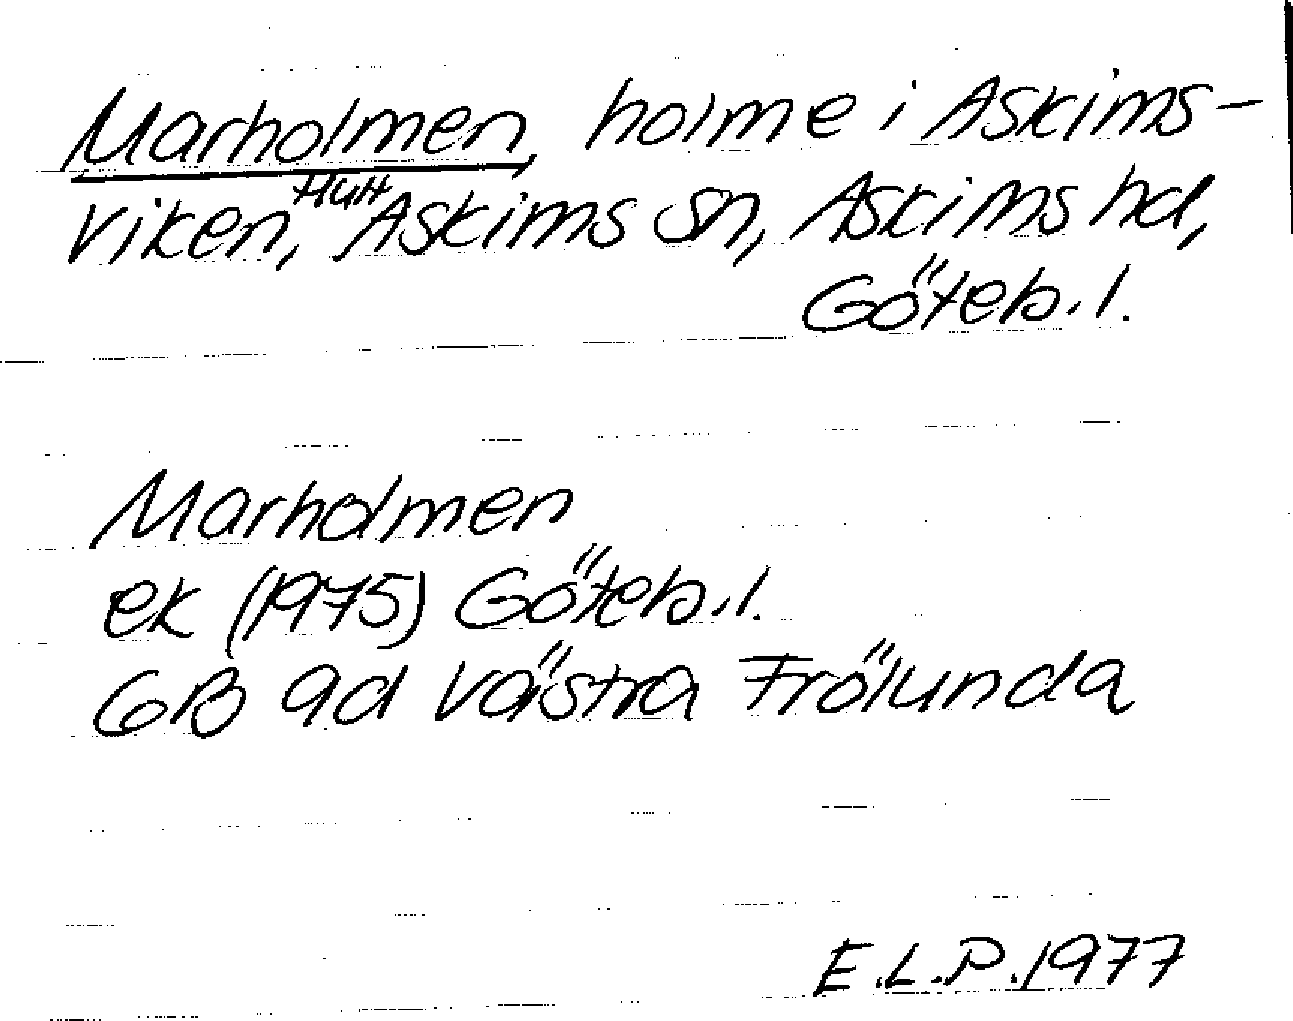 Marholmen, holme i Askims-
viken, Askims sn, Askims hd,
Göteb. l.
Marholmen
ek (1975) Göteb. l.
GB 9d Västra Frölunda
E.L.P. 1977